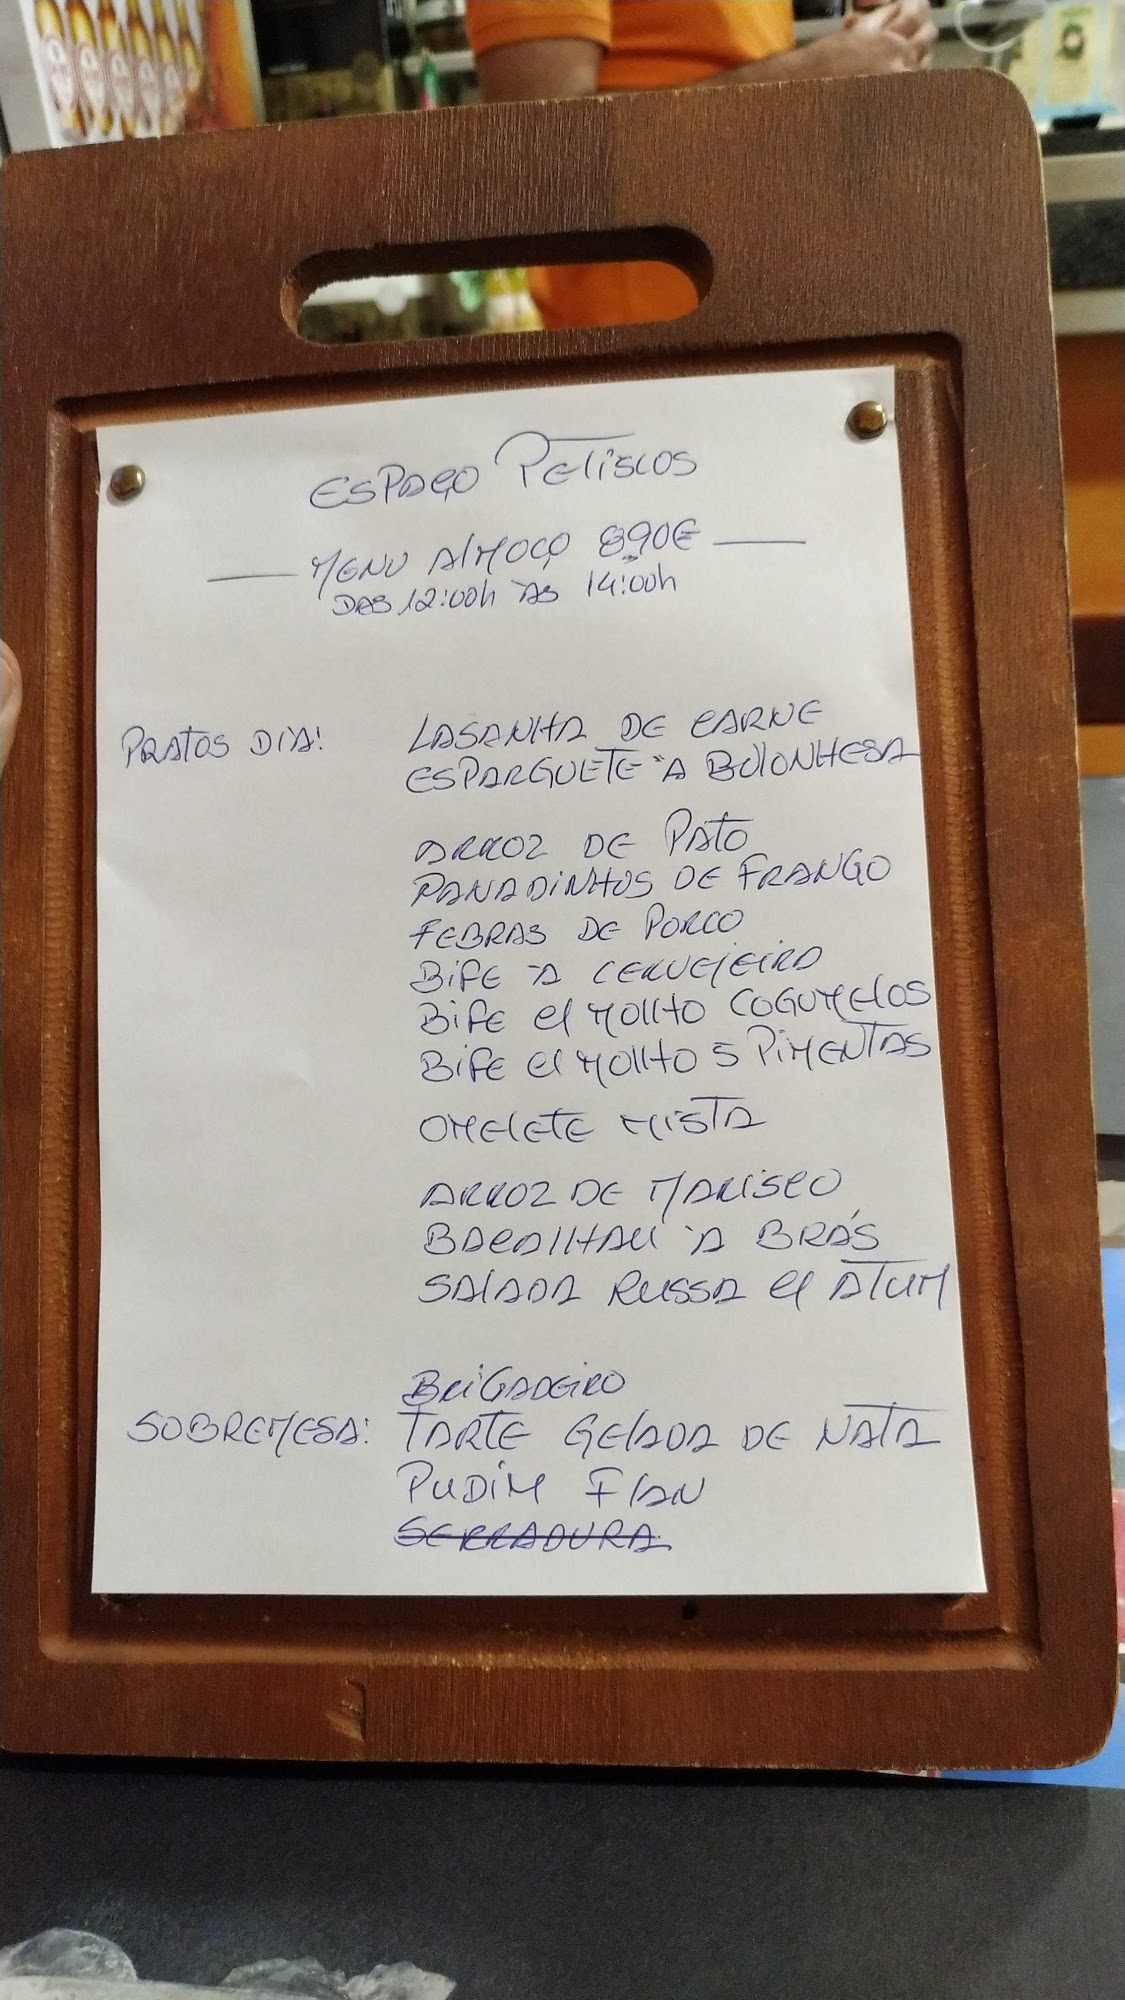 ESPAÇO PETISCOS
MENU AlMOÇO 8,90€
DAS 12:00h ÀS 14:00h
PRATOS DIA:
LASANHA DE CARNE
ESPARGUETE À BOlONHESA
ARROZ DE PATO
PANADINHOS DE FRANGO
FEBRAS DE PORCO
BIFE À CERVEJEIRO
BIFE c/ MOlHO COGUMElOS
BIFE c/ MOlHO 5 PIMENTAS
OMElETE MISTA
ARROZ DE MARISCO
BACAlHAU À BRÁS
SAlADA RUSSA c/ ATUM
BRIGADEIRO
SOBREMESA: TARTE GElADA DE NATA
PUDIM FlAN
SERRADURA